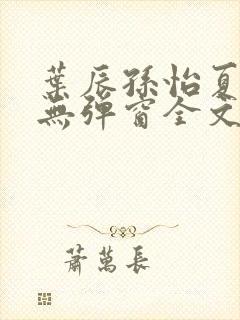 葉辰孫怡夏
無彈窗全文
蕭萬長